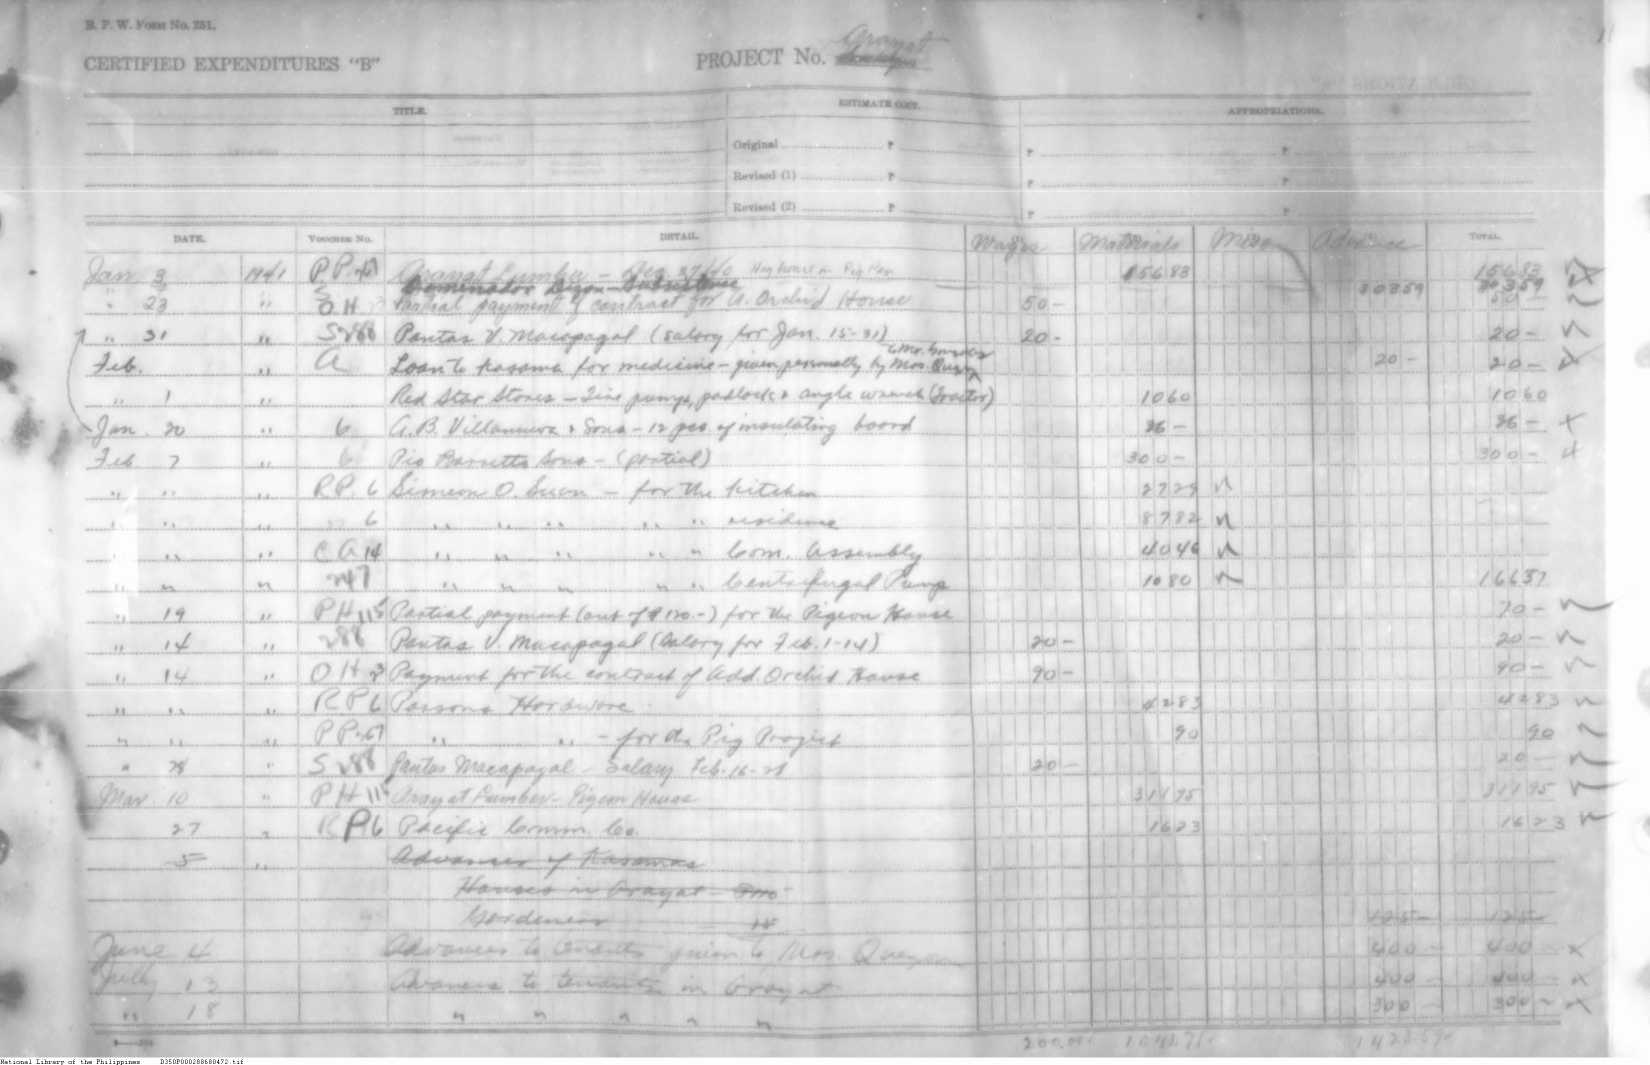 B. P. W. Form No. 251.
CERTIFIED EXPENDITURES "B"
PROJECT No. Arayat
TITLE. ESTIMATE COST. APPROPRIATIONS.
Original P P P
Revised (1) P P P
Revised (2) P P P
DATE. Voucher No. DETAIL. Wages Materials Misc Advance TOTAL
Jan 3 1941 PP-67 Arayat Lumber - Dec. 27/40 15683 15683
30359 30359
" 23 " OH Partial payment of contract for A. Orchid House 50- 50-
" 31 " S288 Pantas V. Macapagal (salary for Jan. 15-31) 20- 20-
Feb. " A Loan to kasama for medicine - given personally by Mrs. Quezon 20- 20-
" 1 " Red Star Stores - Tire pump, padlock & angle wrench (Tractor) 1060 1060
Jan. 20 " 6 A. B. Villanueva & Sons - 12 pcs. of insulating board 36- 36-
Feb 7 " 6 Pio Barretto Sons - (partial) 300- 300-
" " " RP. 6 Simeon O. - for the kitchen 2729
" " " 6 " " " " " residence 8782
" " " CA 14 " " " " " Com. Assembly 4046
" " " 247 " " " " " Centrifugal Pump 1080 16637
" 19 " PH 115 Partial payment (out of ₱120.-) for the Pigeon House 70-
" 14 " 288 Pantas V. Macapagal (Salary for Feb. 1-14) 20- 20-
" 14 " OH 3 Payment for the contract of Add. Orchid House 90- 90-
" " " RP6 Parsons Hardware 4283 4283
" " " PP-67 " " - for the Pig Project 90 90
" 28 " S288 Pantas Macapagal - Salary Feb. 16-28 20- 20-
Mar. 10 " PH 115 Arayat Lumber - Pigeon House 31195 31195
27 " RP6 Pacific Comm. Co. 1623 1623
5 " Advances of Kasamas
Houses in Arayat
Gardeners 125- 125-
June 4 Advances to tenants given to Mrs. Quezon 400- 400-
July 13 Advances to tenants in Arayat 400- 400-
" 18 " " " " " 300- 300-
National Library of the Philippines D350P000288680472.tif